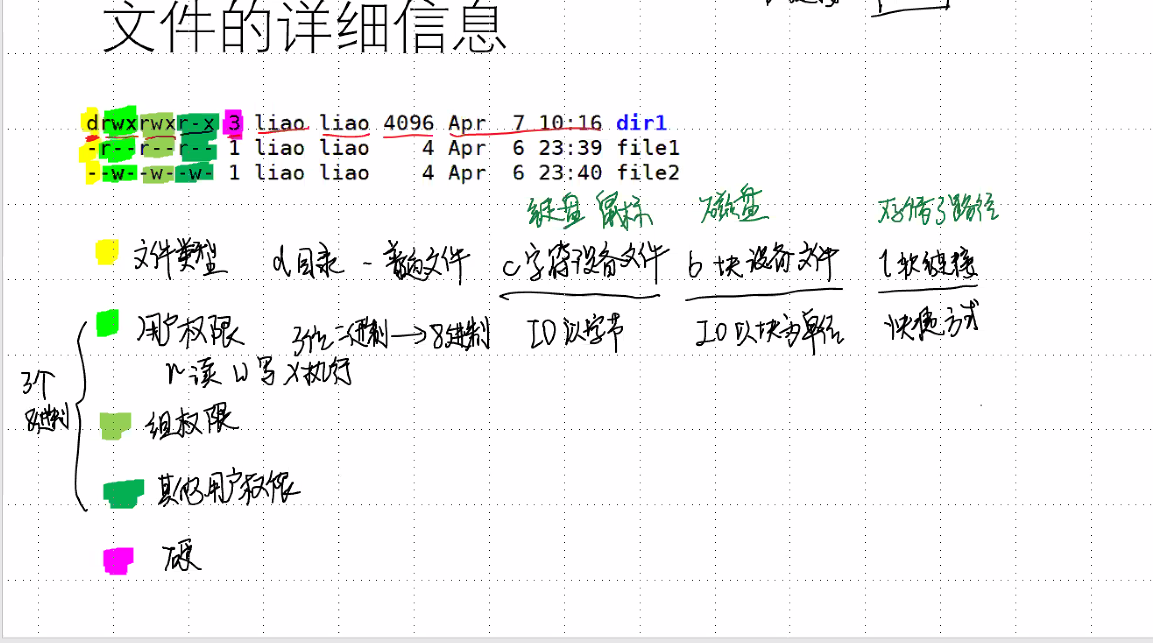 文件的详细信息
drwxrwxr-x 3 liao liao 4096 Apr 7 10:16 dir1
-r--r--r-- 1 liao liao 4 Apr 6 23:39 file1
--w--w--w- 1 liao liao 4 Apr 6 23:40 file2
键盘 鼠标 磁盘 存储了路径
文件类型 d目录 - 普通文件 c字符设备文件 b 块设备文件 l软链接
用户权限 3位二进制→8进制 IO以字节 IO以块为单位 快捷方式
r读 w写 x执行
3个
8进制
组权限
其他用户权限
硬